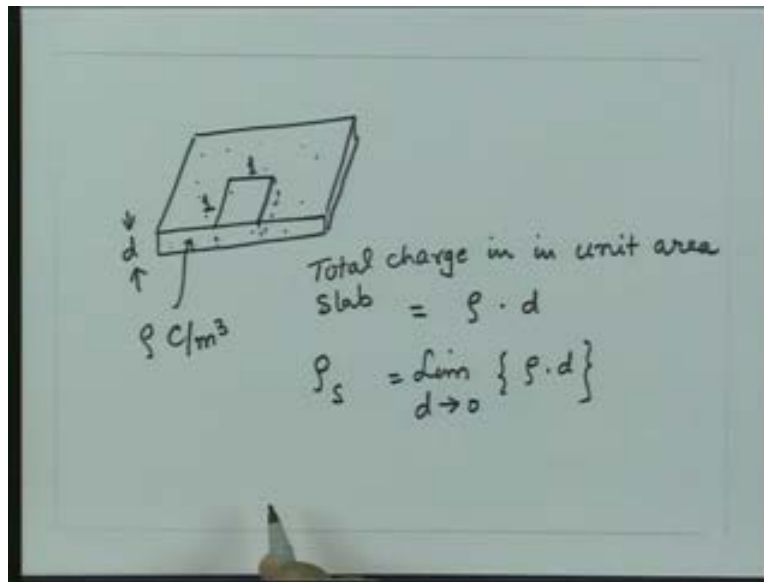 1
1
d
ρ C/m³
Total charge in in unit area
slab = ρ · d
ρ_s = Lim { ρ · d }
d → 0